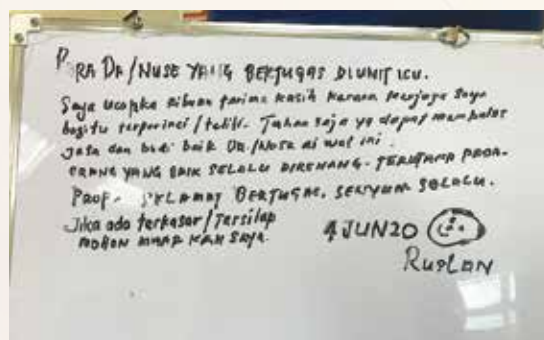 PARA DR/NUSE YANG BERTUGAS DIUNIT ICU.
Saya ucapka ribuan tarima kasih karana menjaga saya
bagitu terperinci/teliti. Tuhan saja yg dapat membalas
jasa dan budi baik DR/Nusa di wat ini.
ORANG YANG BAIK SELALU DIKENANG. TERUTAMA PADA.
PROF. SELAMAT BERTUGAS. SENYUM SELALU.
Jika ada terkasar/Tersilap
MOHON MAAF KAN SAYA.
4 JUN20
RUSLAN